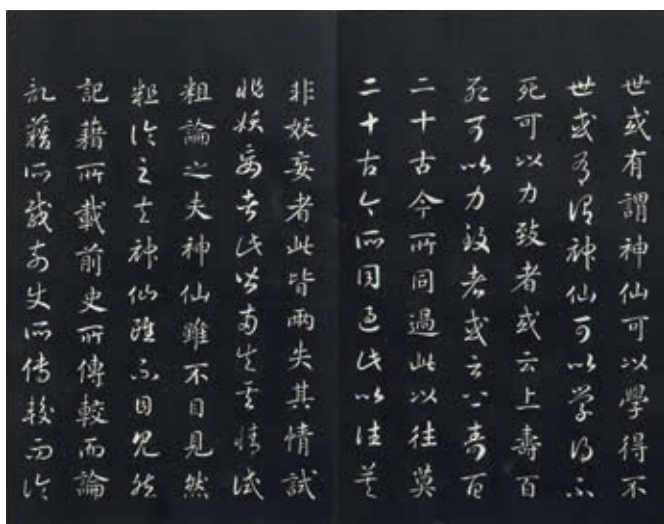 世或有謂神仙可以學得不
世或有謂神仙可以學得不
死可以力致者或云上壽百
死可以力致者或云上壽百
二十古今所同過此以往莫
二十古今所同過此以往莫
非妖妄者此皆兩失其情試
非妖妄者此皆兩失其情試
粗論之夫神仙雖不目見然
粗論之夫神仙雖不目見然
記藉所載前史所傳較而論
記藉所載前史所傳較而論